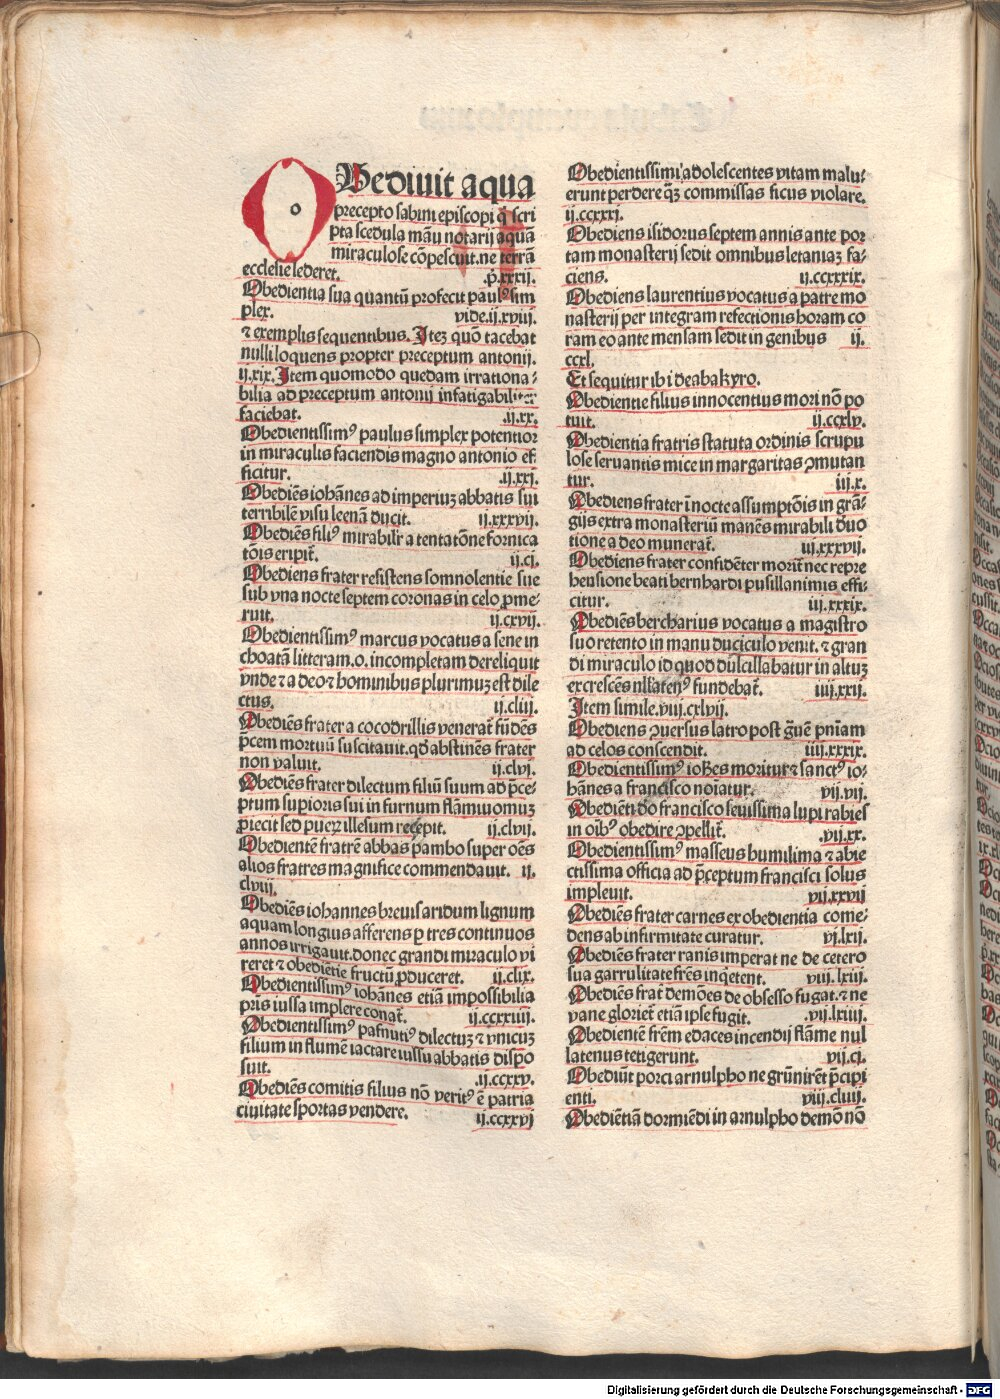 OBediuit aqua
precepto sabini episcopi q̄ scri
pta scedula manu notarij aquā
miraculose cōpescuit.ne terrā
ecclesie lederet. .p̄.xxxij.
Obedientia sua quantū profecit paulꝰ sim
plex. vide.ij.xviij.
⁊ exemplis sequentibus. Itez quō tacebat
nulli loquens propter preceptum antonij.
ij.xix. Item quomodo quedam irrationa⸗
bilia ad preceptum antonij infatigabiliter
faciebat. .ij.xx.
Obedientissimꝰ paulus simplex potentior
in miraculis faciendis magno antonio ef
ficitur. .ij.xxj.
Obediēs iohānes ad imperiuz abbatis sui
terribilē visu leenā ducit. ij.xxxvij.
Obediēs filiꝰ mirabilir a tentatōne fornica
tōis eripit̄. ij.cj.
Obediens frater resistens somnolentie sue
sub vna nocte septem coronas in celo ꝓme⸗
ruit. ij.cxvij.
Obedientissimꝰ marcus vocatus a sene in
choatā litteram.o.incompletam dereliquit
vnde ⁊ a deo ⁊ hominibus plurimuz est dile
ctus. ij.cliij.
Obediēs frater a cocodrillis venerat̄ fūdēs
p̄cem mortuū suscitauit.qd̄ abstinēs frater
non valuit. ij.clvj.
Obediēs frater dilectum filiū suum ad p̄ce⸗
ptum supioris sui in furnum flāmiuomuz
ꝓiecit sed pueꝝ illesum recepit. ij.clvij.
Obedientē fratrē abbas pambo super oēs
alios fratres magnifice commendauit. ij.
clviij.
Obediēs iohannes breuis aridum lignum
aquam longius afferens ꝑ tres continuos
annos irrigauit.donec grandi miraculo vi
reret ⁊ obediētie fructū ꝓduceret. ij.clix.
Obedientissimꝰ iohānes etiā impossibilia
pris iussa implere conat̄. ij.ccxxiiij.
Obedientissimꝰ pafnutiꝰ dilectuz ⁊ vnicuz
filium in flumē iactare iussu abbatis dispo
suit. .ij.ccxxv.
Obediēs comitis filius nō veritꝰ ē patria
ciuitate sportas vendere. ij.ccxxvj
Obedientissimi adolescentes vitam malu⸗
erunt perdere q̄ꝫ commissas ficus violare.
ij.ccxxxj.
Obediens isidorus septem annis ante por
tam monasterij sedit omnibus letanias fa⸗
ciens. ij.ccxxxix.
Obediens laurentius vocatus a patre mo
nasterij per integram refectionis horam co
ram eo ante mensam sedit in genibus ij.
ccxl.
Et sequitur ibi de abakyro.
Obedientie filius innocentius mori nō po
tuit. ij.ccxlv.
Obedientia fratris statuta ordinis scrupu
lose seruantis mice in margaritas ꝯmutan
tur. iij.x.
Obediens frater ī nocte assumptōis in grā⸗
gijs extra monasteriū manēs mirabili duo
tione a deo munerat̄. iij.xxxvij.
Obediens frater confidēter moriī nec repre
hensione beati bernhardi pusillanimis effi⸗
citur. iij.xxxix.
Obediēs bercharius vocatus a magistro
suo retento in manu duciculo venit.⁊ gran
di miraculo id quod distillabatur in altuz
excrescēs nllatenꝰ fundebat̄. iiij.xxij.
Item simile.viij.cxlvij.
Obediens ꝯuersus latro post ḡuē pniām
ad celos conscendit. iiij.xxxix.
Obedientissimꝰ iohes moritur ⁊ sanctꝰ io⸗
hānes a francisco noiatur. vij.vij.
Obediēti do francisco seuissima lupi rabies
in oibꝰ obedire ꝯpellit̄. .vij.xx.
Obedientissimꝰ masseus humilima ⁊ abie
ctissima officia ad p̄ceptum francisci solus
impleuit. vij.xxvij
Obediēs frater carnes ex obedientia come⸗
dens ab infirmitate curatur. vj.lxij.
Obediēs frater ranis imperat ne de cetero
sua garrulitate frēs inq̄etent. viij.lxiij.
Obediēs frat̄ demōes de obsesso fugat.⁊ ne
vane gloriet̄ etiā ipse fugit. .vij.lxiiij.
Obedientē frēm edaces incendij flāme nul
latenus tetigerunt. vij.cj.
Obediūt porci arnulpho ne grūnirēt p̄cipi
enti. viij.cliij.
Obediētiā dormiēdi in arnulpho demō nō
Digitalisierung gefördert durch die Deutsche Forschungsgemeinschaft - DFG